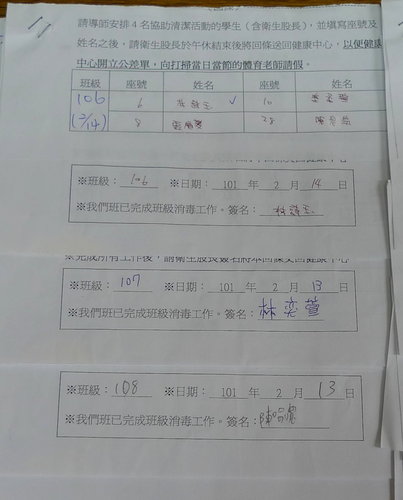 請導師安排4名協助清潔活動的學生（含衛生股長），並填寫座號及
姓名之後，請衛生股長於午休結束後將回條送回健康中心，以便健康
中心開立公差單，向打掃當日當節的體育老師請假。
班級 座號 姓名 座號 姓名
106 6 10
(2/14) 8 28
※班級：106 ※日期：101 年 2 月 14 日
※我們班已完成班級消毒工作。簽名：
※完成所有工作後，請衛生股長簽名將本回條交回健康中心
※班級：107 ※日期：101 年 2 月 13 日
※我們班已完成班級消毒工作。簽名：林奕萱
※班級：108 ※日期：101 年 2 月 13 日
※我們班已完成班級消毒工作。簽名：陳